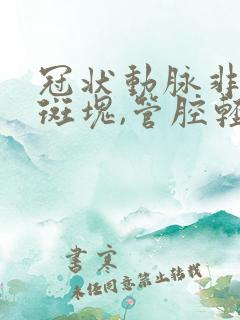 冠状動脉非
斑塊,管腔輕
書寒
未经同意禁止转载